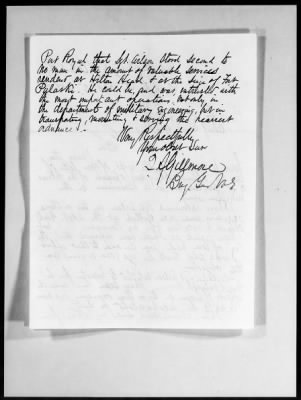 Port Royal that Sgt. Wilson stood second to
no man in the amount of valuable services
rendered at Hilton Head & at the siege of Fort
Pulaski. He could be, and was, entrusted with
the most important operations, not only in
the department of military engineering, but in
transporting, mounting & serving the heaviest
ordnance.
Very Respectfully
Your obdt Serv
Q A Gillmore
Brig Gen Vols